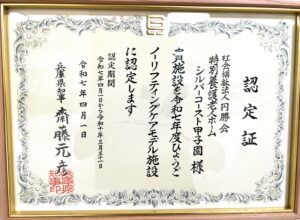 認定証
社会福祉法人円勝会
特別養護老人ホーム
シルバーコースト甲子園 様
貴施設を令和七年度ひょうご
ノーリフティングケアモデル施設
に認定します
認定期間
令和七年四月一日から令和十年三月三十一日
令和七年四月一日
兵庫県知事 齋藤元彦